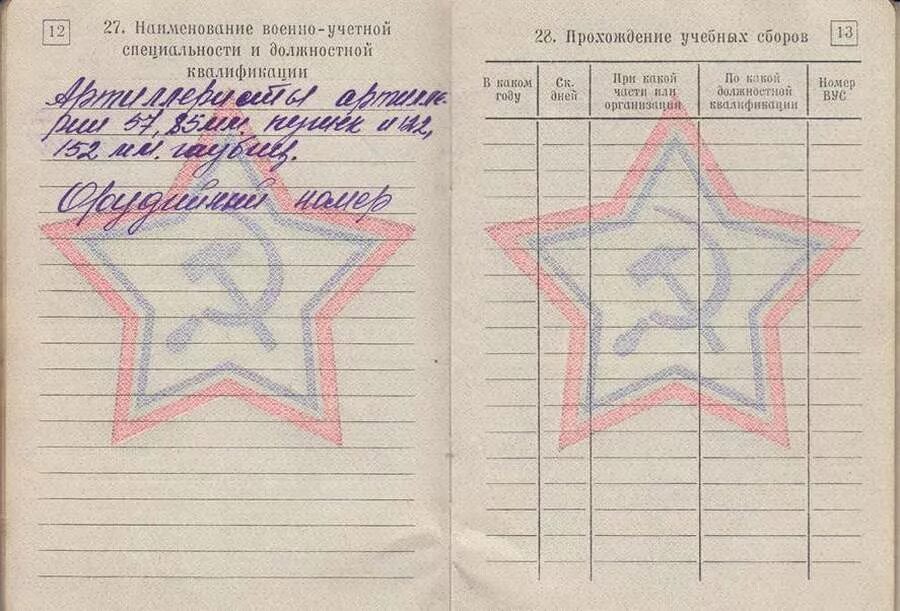 12
27. Наименование военно-учетной
специальности и должностной
квалификации
Артиллеристы артилле-
рии 57, 85мм. пушек и 122,
152 мм. гаубиц.
Орудийный номер
13
28. Прохождение учебных сборов
В каком году
Ск. дней
При какой части или организации
По какой должностной квалификации
Номер ВУС